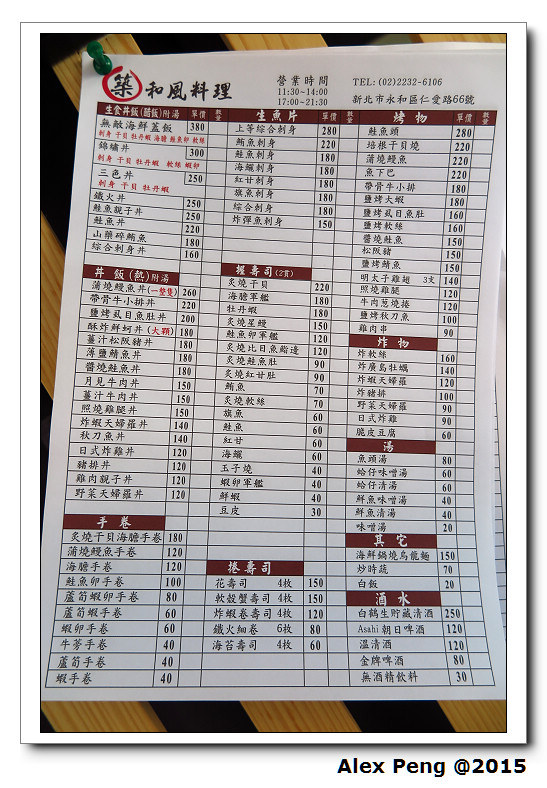 築 和風料理
營業時間
11:30~14:00
17:00~21:30
TEL: (02)2232-6106
新北市永和區仁愛路66號
生食丼飯(醋飯)附湯 單價 數量
無敵海鮮蓋飯 380
刺身 干貝 牡丹蝦 海膽 鮭魚卵 軟絲
錦繡丼 300
刺身 干貝 牡丹蝦 軟絲 蝦卵
三色丼 250
刺身 干貝 牡丹蝦
鐵火丼 250
鮭魚親子丼 250
鮭魚丼 220
山藥碎鮪魚 180
綜合刺身丼 160
丼飯(熱)附湯
蒲燒鰻魚丼(一整隻) 260
帶骨牛小排丼 220
鹽烤虱目魚肚丼 200
酥炸鮮蚵丼(大顆) 180
薑汁松阪豬丼 180
薄鹽鯖魚丼 180
醬燒鮭魚丼 180
月見牛肉丼 150
薑汁牛肉丼 150
照燒雞腿丼 150
炸蝦天婦羅丼 140
秋刀魚丼 140
日式炸雞丼 120
豬排丼 120
雞肉親子丼 120
野菜天婦羅丼 120
手卷
炙燒干貝海膽手卷 180
蒲燒鰻魚手卷 120
海膽手卷 120
鮭魚卵手卷 100
蘆筍蝦卵手卷 80
蘆筍蝦手卷 60
蝦卵手卷 60
牛蒡手卷 40
蘆筍手卷 40
蝦手卷 40
生魚片 單價 數量
上等綜合刺身 280
鮪魚刺身 220
鮭魚刺身 180
海鱺刺身 180
紅甘刺身 180
旗魚刺身 180
綜合刺身 180
炸彈魚刺身 150
握壽司(2貫)
炙燒干貝 220
海膽軍艦 180
牡丹蝦 180
炙燒星鰻 150
鮭魚卵軍艦 120
炙燒比目魚鰭邊 120
炙燒鮭魚肚 90
炙燒紅甘肚 90
鮪魚 70
炙燒軟絲 70
旗魚 60
鮭魚 60
紅甘 60
海鱺 60
玉子燒 40
蝦卵軍艦 40
鮮蝦 40
豆皮 30
捲壽司
花壽司 4枚 150
軟殼蟹壽司 4枚 150
炸蝦卷壽司 4枚 120
鐵火細卷 6枚 80
海苔壽司 4枚 60
烤物 單價 數量
鮭魚頭 280
培根干貝燒 220
蒲燒鰻魚 220
魚下巴 220
帶骨牛小排 180
鹽烤大蝦 180
鹽烤虱目魚肚 160
鹽烤軟絲 160
醬燒鮭魚 150
松阪豬 150
鹽烤鯖魚 150
明太子雞翅 3支 140
照燒雞腿 120
牛肉蔥燒捲 120
鹽烤秋刀魚 100
雞肉串 90
炸物
炸軟絲 160
炸廣島牡蠣 140
炸蝦天婦羅 120
炸豬排 100
野菜天婦羅 90
日式炸雞 90
脆皮豆腐 60
湯
魚頭湯 80
蛤仔味噌湯 60
蛤仔清湯 60
鮮魚味噌湯 40
鮮魚清湯 40
味噌湯 20
其它
海鮮鍋燒烏龍麵 150
炒時蔬 70
白飯 20
酒水
白鶴生貯藏清酒 250
Asahi 朝日啤酒 120
溫清酒 120
金牌啤酒 80
無酒精飲料 30
Alex Peng @2015